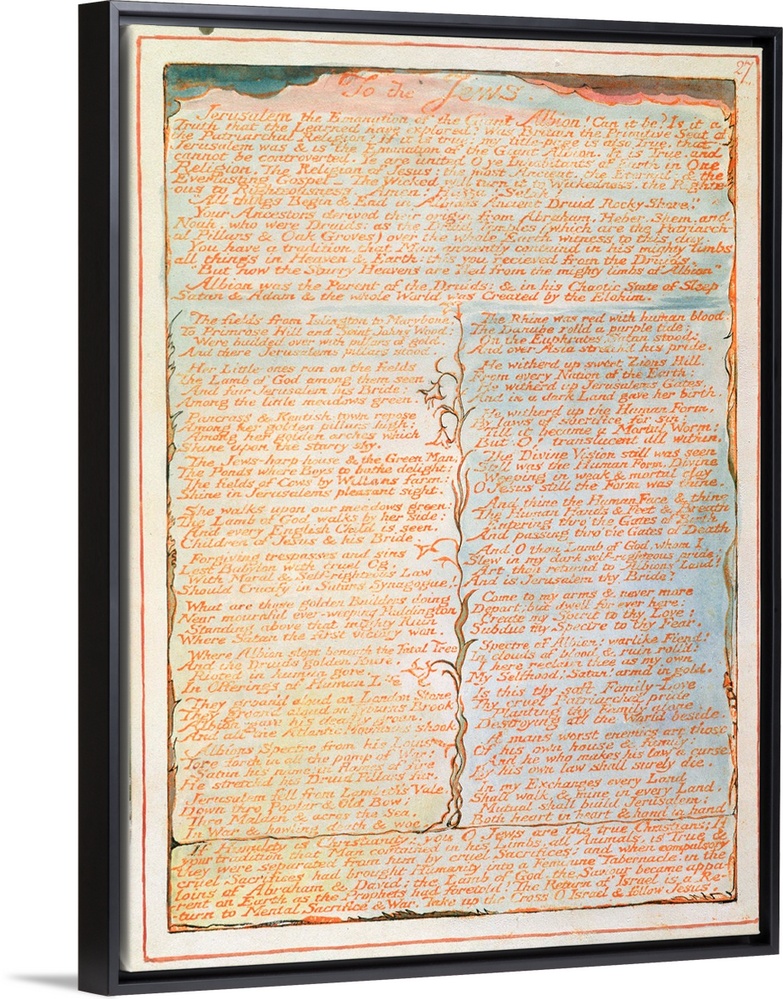 27
To the Jews.
Jerusalem the Emanation of the Giant Albion! Can it be? Is it a
Truth that the Learned have explored? Was Britain the Primitive Seat of
the Patriarchal Religion? If it is true: my title-page is also True, that
Jerusalem was & is the Emanation of the Giant Albion. It is True, and
cannot be controverted. Ye are united O ye Inhabitants of Earth in One
Religion. The Religion of Jesus: the most Ancient, the Eternal: & the
Everlasting Gospel — The Wicked will turn it to Wickedness, the Righte
ous to Righteousness. Amen! Huzza! Selah!
All things Begin & End in Albions Ancient Druid Rocky Shore.
Your Ancestors derived their origin from Abraham, Heber, Shem, and
Noah, who were Druids: as the Druid Temples (which are the Patriarch
al Pillars & Oak Groves) over the whole Earth witness to this day.
You have a tradition, that Man anciently containd in his mighty limbs
all things in Heaven & Earth: this you recieved from the Druids.
But now the Starry Heavens are fled from the mighty limbs of Albion
Albion was the Parent of the Druids; & in his Chaotic State of Sleep
Satan & Adam & the whole World was Created by the Elohim.
The fields from Islington to Marybone,
To Primrose Hill and Saint Johns Wood:
Were builded over with pillars of gold,
And there Jerusalems pillars stood.
Her Little-ones ran on the fields
The Lamb of God among them seen
And fair Jerusalem his Bride:
Among the little meadows green.
Pancrass & Kentish-town repose
Among her golden pillars high:
Among her golden arches which
Shine upon the starry sky.
The Jews-harp-house & the Green Man;
The Ponds where Boys to bathe delight:
The fields of Cows by Willans farm:
Shine in Jerusalems pleasant sight.
She walks upon our meadows green:
The Lamb of God walks by her side:
And every English Child is seen,
Children of Jesus & his Bride,
Forgiving trespasses and sins
Lest Babylon with cruel Og,
With Moral & Self-righteous Law
Should Crucify in Satans Synagogue!
What are those golden Builders doing
Near mournful ever-weeping Paddington
Standing above that mighty Ruin
Where Satan the first victory won.
Where Albion slept beneath the Fatal Tree
And the Druids golden Knife,
Rioted in human gore,
In Offerings of Human Life
They groan'd aloud on London Stone
They groan'd aloud on Tyburns Brook
Albion gave his deadly groan,
And all the Atlantic Mountains shook
Albions Spectre from his Loins
Tore forth in all the pomp of War!
Satan his name: in flames of fire
He stretch'd his Druid Pillars far.
Jerusalem fell from Lambeth's Vale,
Down thro Poplar & Old Bow;
Thro Malden & acros the Sea,
In War & howling death & woe.
The Rhine was red with human blood:
The Danube rolld a purple tide:
On the Euphrates Satan stood:
And over Asia stretch'd his pride.
He witherd up sweet Zions Hill,
From every Nation of the Earth:
He witherd up Jerusalems Gates,
And in a dark Land gave her birth.
He witherd up the Human Form,
By laws of sacrifice for sin:
Till it became a Mortal Worm:
But O! translucent all within.
The Divine Vision still was seen
Still was the Human Form, Divine
Weeping in weak & mortal clay
O Jesus still the Form was thine.
And thine the Human Face & thine
The Human Hands & Feet & Breath
Entering thro' the Gates of Birth
And passing thro' the Gates of Death
And O thou Lamb of God, whom I
Slew in my dark self-righteous pride:
Art thou return'd to Albions Land!
And is Jerusalem thy Bride?
Come to my arms & never more
Depart; but dwell for ever here:
Create my Spirit to thy Love:
Subdue my Spectre to thy Fear.
Spectre of Albion! warlike Fiend!
In clouds of blood & ruin roll'd:
I here reclaim thee as my own
My Selfhood! Satan! armd in gold.
Is this thy soft Family-Love
Thy cruel Patriarchal pride
Planting thy Family alone,
Destroying all the World beside.
A mans worst enemies are those
Of his own house & family;
And he who makes his law a curse,
By his own law shall surely die.
In my Exchanges every Land
Shall walk, & mine in every Land,
Mutual shall build Jerusalem:
Both heart in heart & hand in hand.
If Humility is Christianity; you O Jews are the true Christians; If
your tradition that Man contained in his Limbs, all Animals, is True & 
they were separated from him by cruel Sacrifices: and when compulsory
cruel Sacrifices had brought Humanity into a Feminine Tabernacle, in the
loins of Abraham & David: the Lamb of God, the Saviour became appa-
rent on Earth as the Prophets had foretold? The Return of Israel is a Re-
turn to Mental Sacrifice & War. Take up the Cross O Israel & follow Jesus.